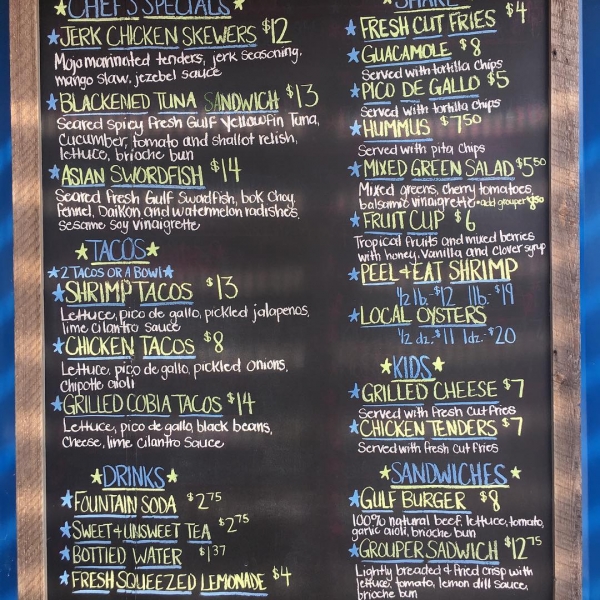 CHEF'S SPECIALS
JERK CHICKEN SKEWERS $12
Mojo marinated tenders, jerk seasoning,
mango slaw, jezebel sauce
BLACKENED TUNA SANDWICH $13
Seared spicy fresh Gulf Yellowfin Tuna,
cucumber, tomato and shallot relish,
lettuce, brioche bun
ASIAN SWORDFISH $14
Seared Fresh Gulf Swordfish, bok choy,
fennel, Daikon and watermelon radishes,
sesame soy vinaigrette
TACOS
2 TACOS OR A BOWL
SHRIMP TACOS $13
Lettuce, pico de gallo, pickled jalapenos,
lime cilantro sauce
CHICKEN TACOS $8
Lettuce, pico de gallo, pickled onions,
chipotle aioli
GRILLED COBIA TACOS $14
Lettuce, pico de gallo, black beans,
cheese, lime cilantro sauce
DRINKS
FOUNTAIN SODA $2.75
SWEET + UNSWEET TEA $2.75
BOTTLED WATER $1.37
FRESH SQUEEZED LEMONADE $4
SHARE
FRESH CUT FRIES $4
GUACAMOLE $8
Served with tortilla chips
PICO DE GALLO $5
Served with tortilla chips
HUMMUS $7.50
Served with pita chips
MIXED GREEN SALAD $5.50
Mixed greens, cherry tomatoes,
balsamic vinaigrette - add grouper
FRUIT CUP $6
Tropical fruits and mixed berries
with honey, vanilla and clover syrup
PEEL + EAT SHRIMP
1/2 lb. $12 1lb. $19
LOCAL OYSTERS
1/2 dz. $11 1dz. $20
KIDS
GRILLED CHEESE $7
Served with fresh cut fries
CHICKEN TENDERS $7
Served with fresh cut fries
SANDWICHES
GULF BURGER $8
100% natural beef, lettuce, tomato,
garlic aioli, brioche bun
GROUPER SADWICH $12.75
Lightly breaded + fried crisp with
lettuce, tomato, lemon dill sauce,
brioche bun